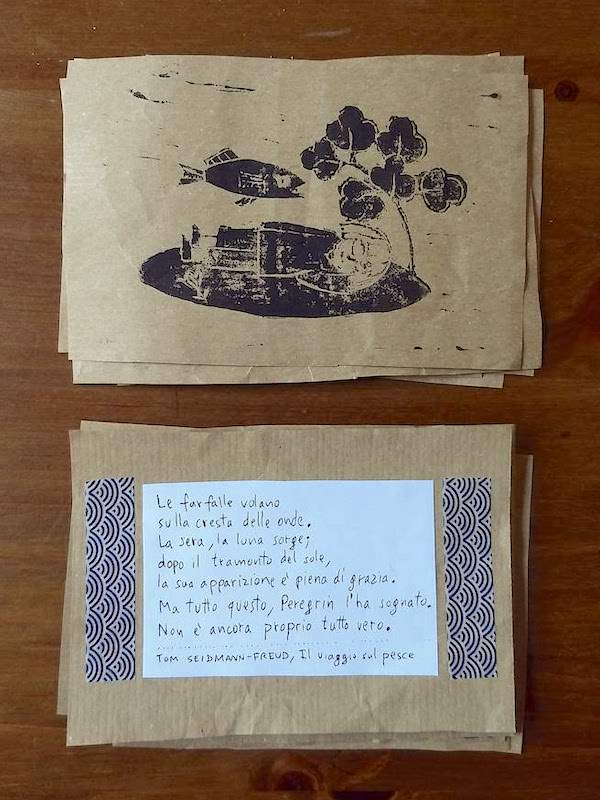 Le farfalle volano
sulla cresta delle onde.
La sera, la luna sorge;
dopo il tramonto del sole,
la sua apparizione è piena di grazia.
Ma tutto questo, Peregrin l'ha sognato.
Non è ancora proprio tutto vero.
TOM SEIDMANN-FREUD, Il viaggio sul pesce